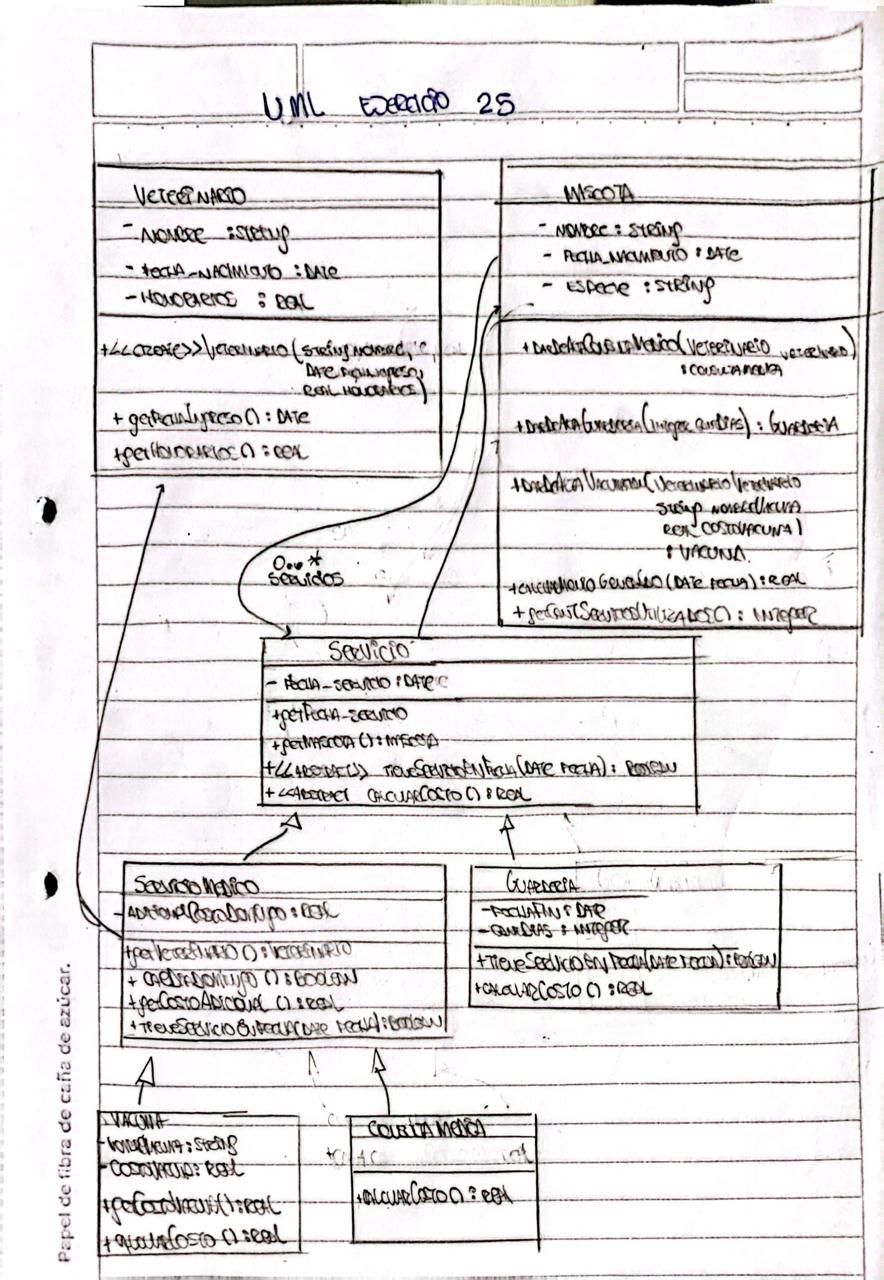 UML EJERCICIO 25
VETERINARIO
- NOMBRE : STRING
- FECHA_NACIMIENTO : DATE
- HONORARIOS : REAL
+<<CREATE>> VETERINARIO (STRING NOMBRE,
DATE FECHAINGRESO,
REAL HONORARIOS)
+ getFechaIngreso () : DATE
+ getHONORARIOS () : REAL
MASCOTA
- NOMBRE : STRING
- FECHA_NACIMIENTO : DATE
- ESPECIE : STRING
(VETERINARIO VETERINARIO)
: CONSULTAMEDICA
(Integer CantDIAS) : GUARDERIA
(VETERINARIO VETERINARIO
String NOMBREVACUNA
REAL COSTOVACUNA)
: VACUNA
(DATE FECHA) : REAL
+ getCantServiciosUTILIZADOS () : INTEGER
0..*
Servicios
Servicio
- FECHA_SERVICIO : DATE
+getFecha_Servicio
+getMASCOTA () : MASCOTA
+<<ABSTRACT>> TieneServicioEnFecha (DATE FECHA) : BOOLEAN
+<<ABSTRACT CALCULARCOSTO () : REAL
Servicio MEDICO
: REAL
+getVETERINARIO () : VETERINARIO
+ () : BOOLEAN
+getCOSTOADICIONAL () : REAL
+TieneServicioEnFecha (DATE FECHA) : BOOLEAN
GUARDERIA
- FECHAFIN : DATE
- CANTDIAS : INTEGER
+TieneServicioEnFecha (DATE FECHA) : BOOLEAN
+CALCULARCOSTO () : REAL
VACUNA
- NOMBREVACUNA : String
- COSTOVACUNA : REAL
+getCostoVacuna () : REAL
+CALCULARCOSTO () : REAL
CONSULTA MEDICA
+CALCULARCOSTO () : REAL
Papel de fibra de caña de azúcar.